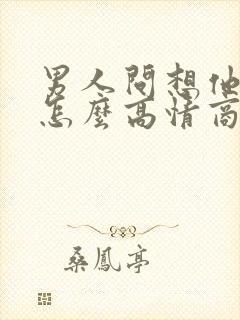 男人問想他
怎麼高情商
桑鳳亭